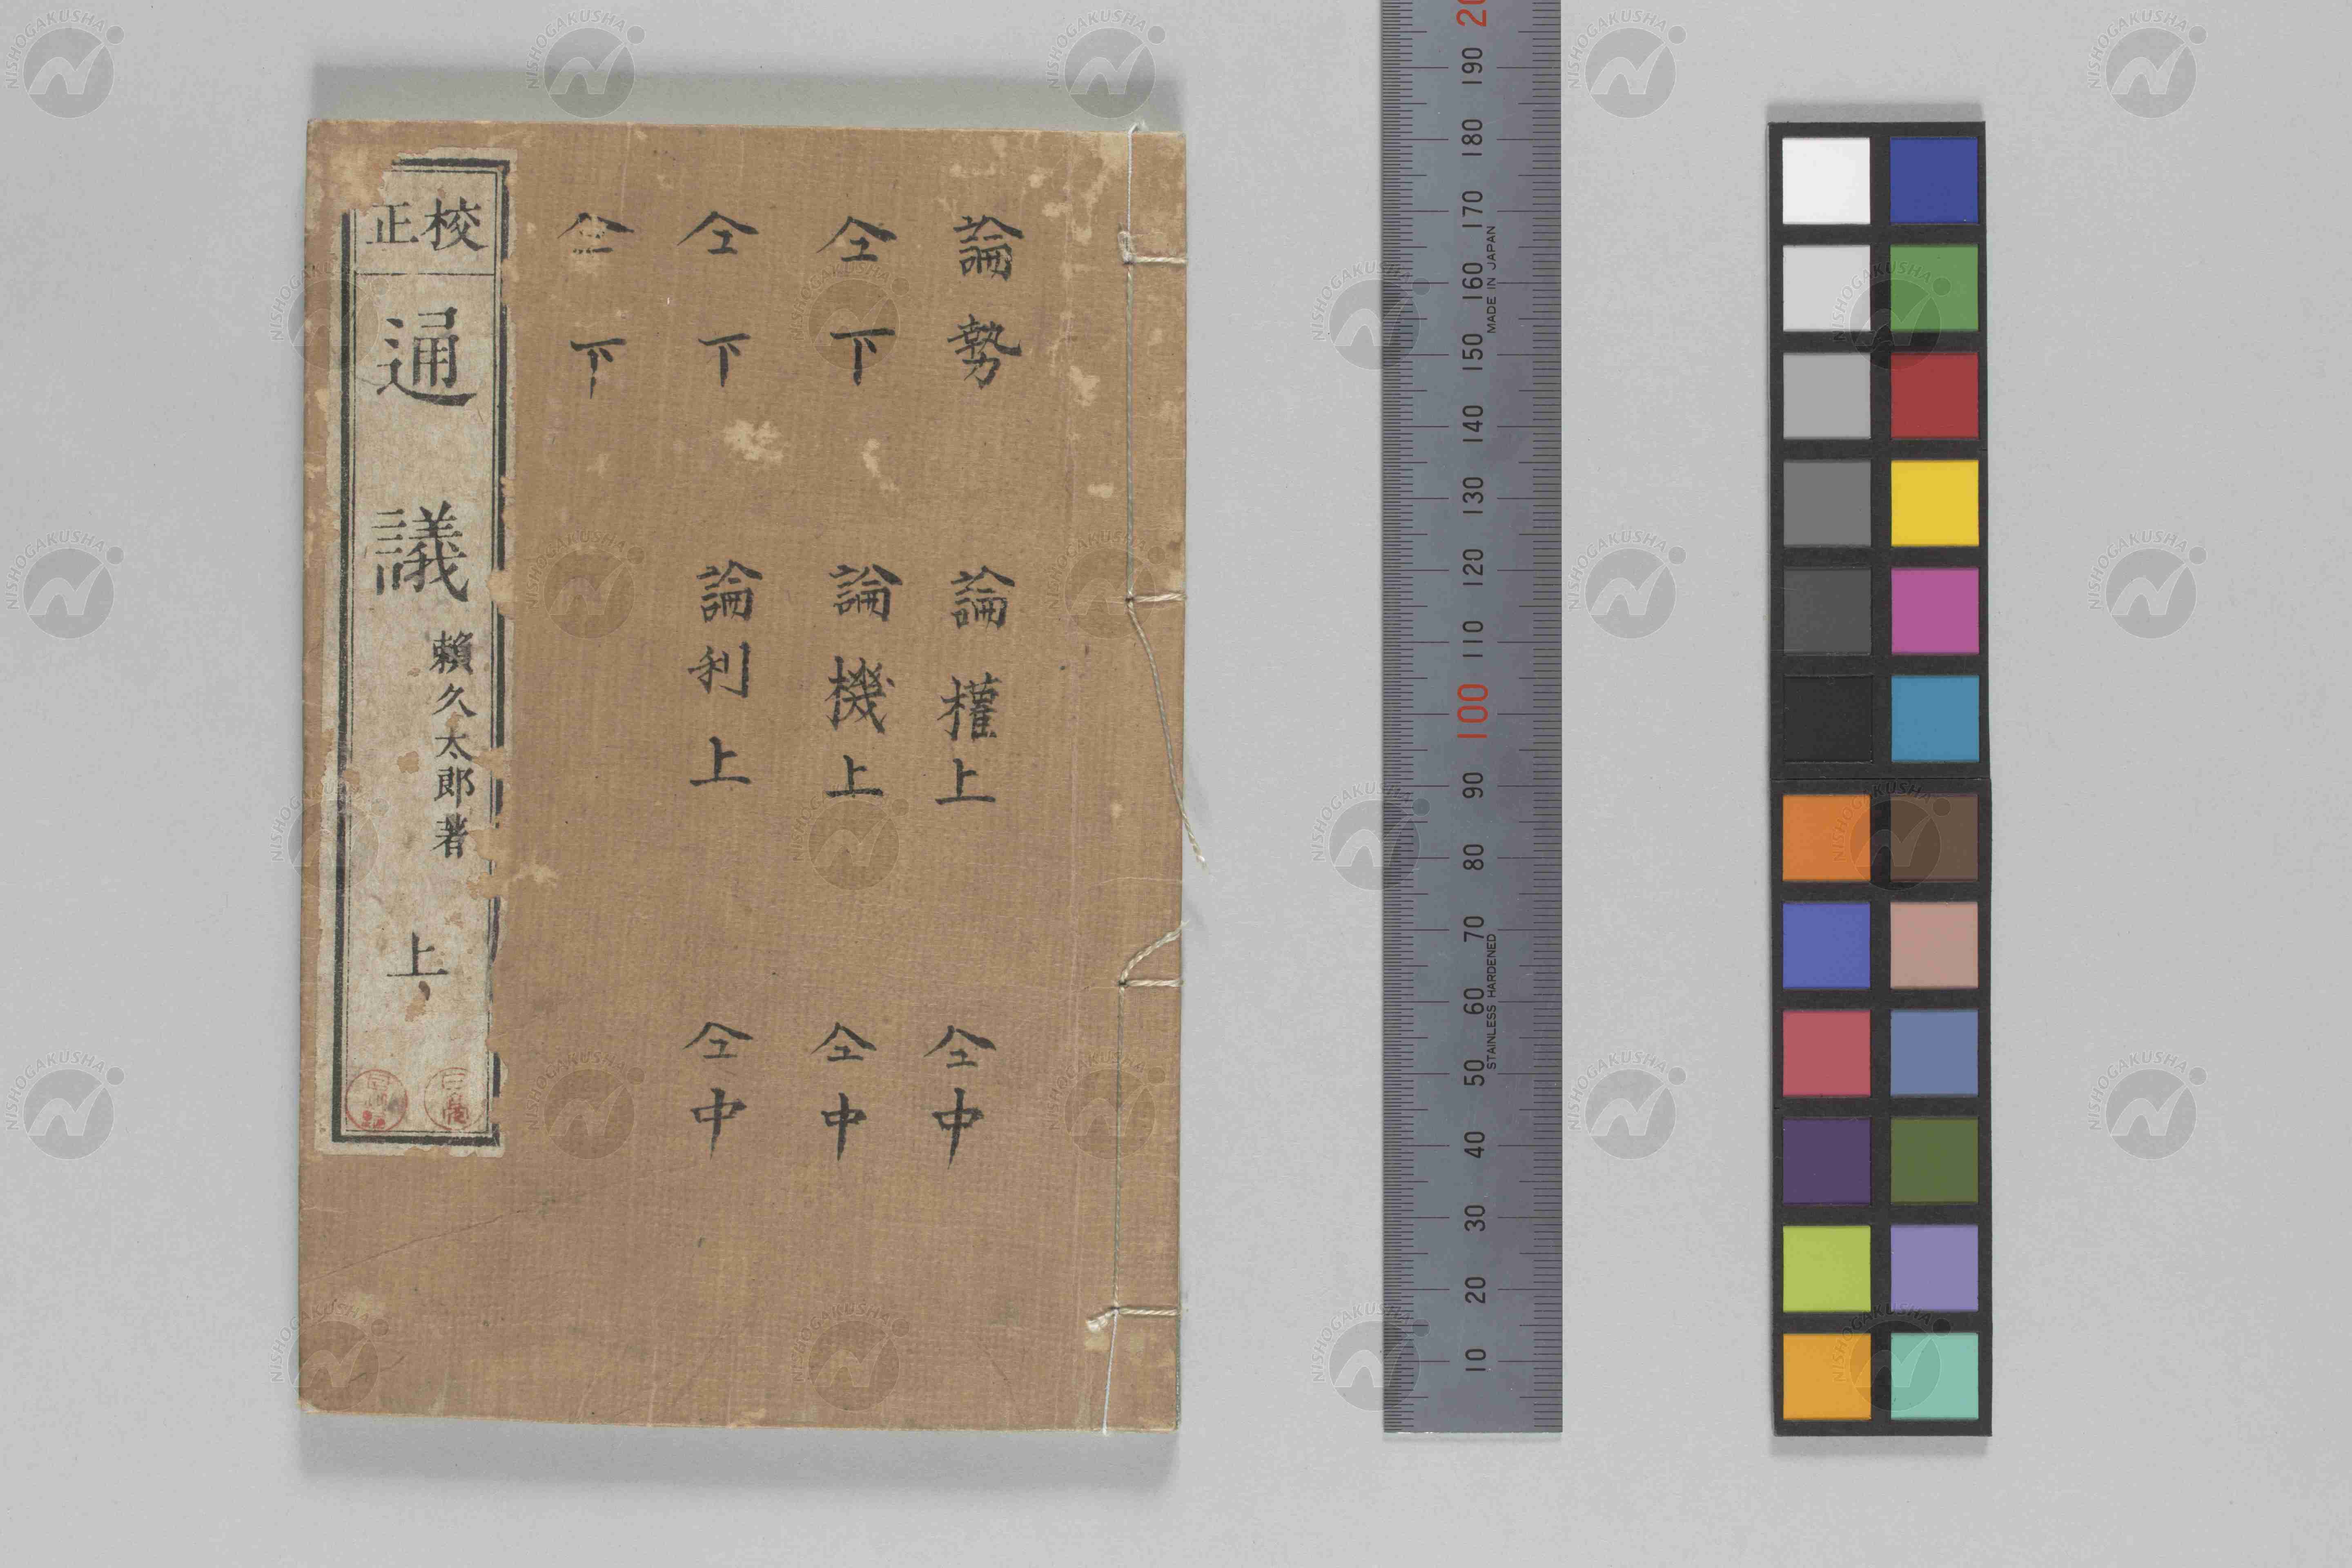 論勢 論權上 仝中
仝下 論機上 仝中
仝下 論利上 仝中
仝下
校正
通議
賴久太郎著
上
190
180
170
160
150
140
130
120
110
100
90
80
70
60
50
40
30
20
10
MADE IN JAPAN
STAINLESS HARDENED
NISHOGAKUSHA